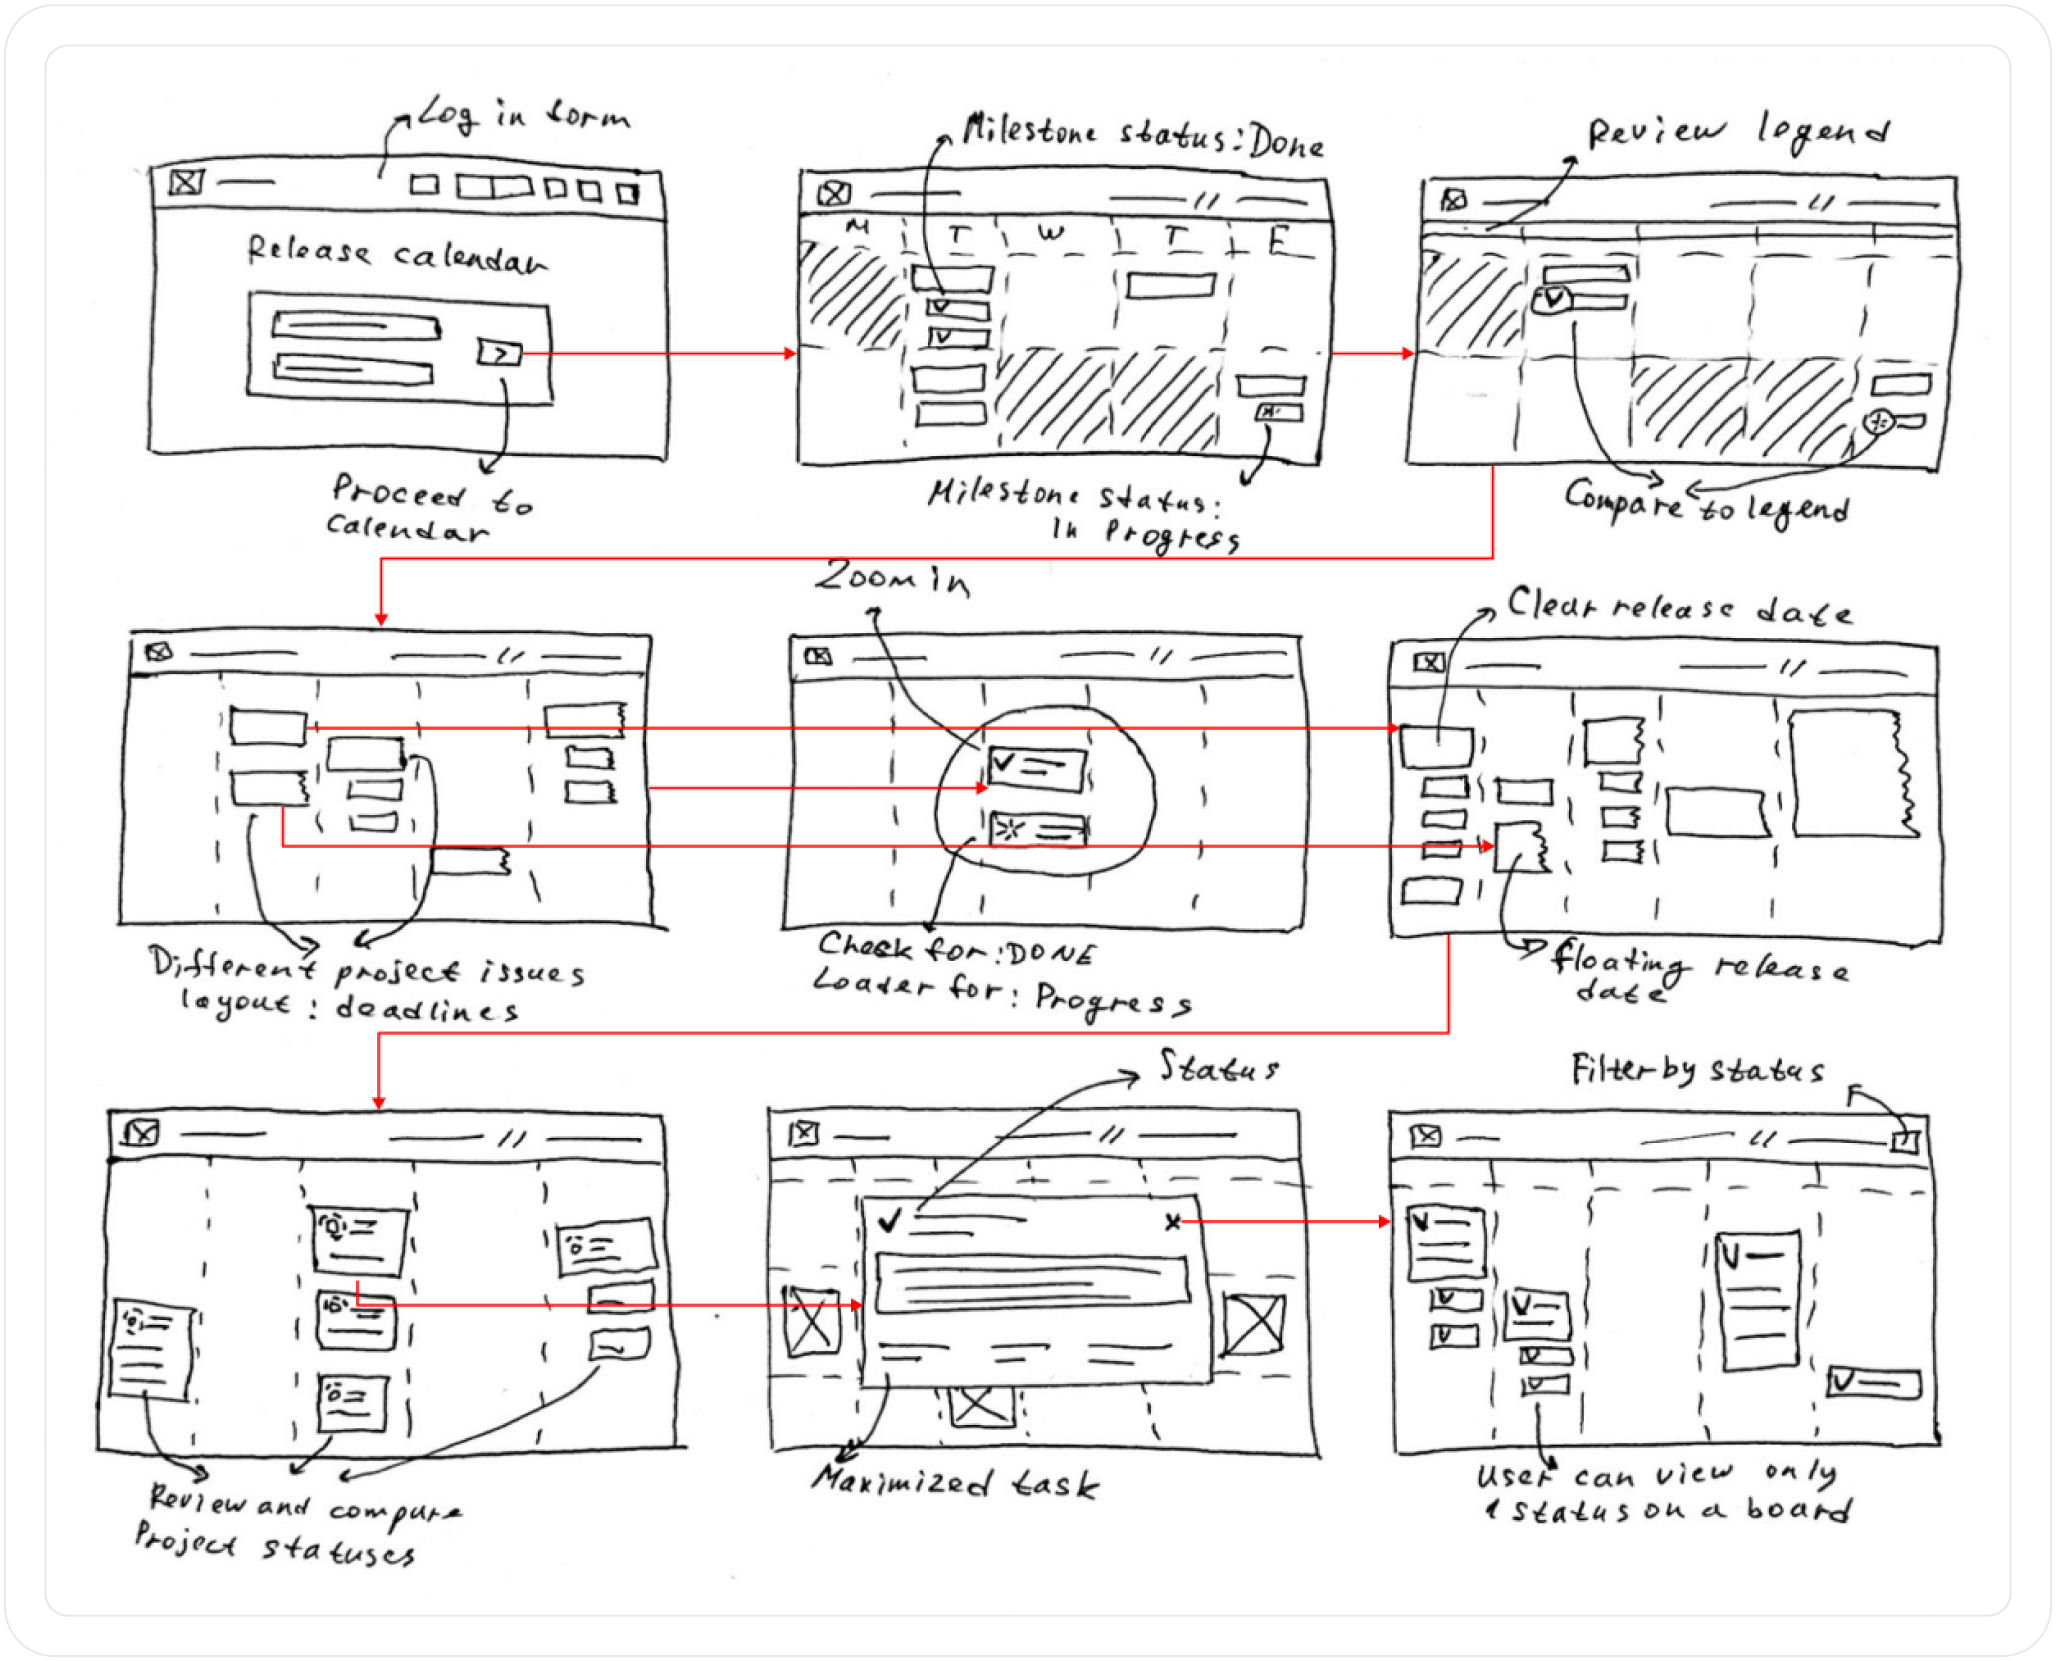 Log in form
Release calendar
Proceed to
calendar
Milestone status: Done
M T W T F
Milestone status:
In Progress
Review legend
Compare to legend
Different project issues
layout: deadlines
Zoom in
Check for: DONE
Loader for: Progress
Clear release date
floating release
date
Review and compare
Project statuses
Status
Maximized task
Filter by status
User can view only
1 status on a board